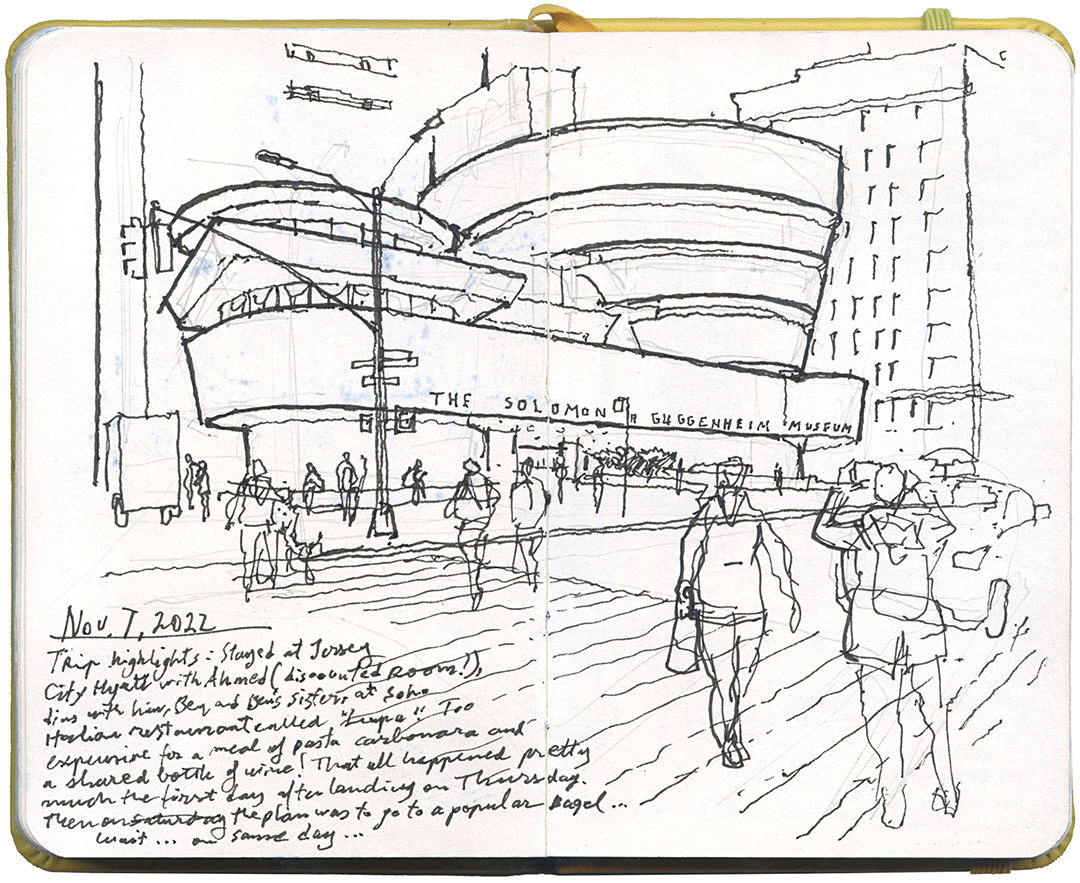 THE SOLOMON R GUGGENHEIM MUSEUM
Nov. 7, 2022
Trip highlights: Stayed at Jersey
City Hyatt with Ahmed (discounted ROOM!),
dins with him, Ben and Ben's sister, at Soho
Italian restaurant called "Lupa". Too
expensive for a meal of pasta carbonara and
a shared bottle of wine! That all happened pretty
much the first day after landing on Thursday.
Then on saturday the plan was to go to a popular Bagel...
wait... on same day...